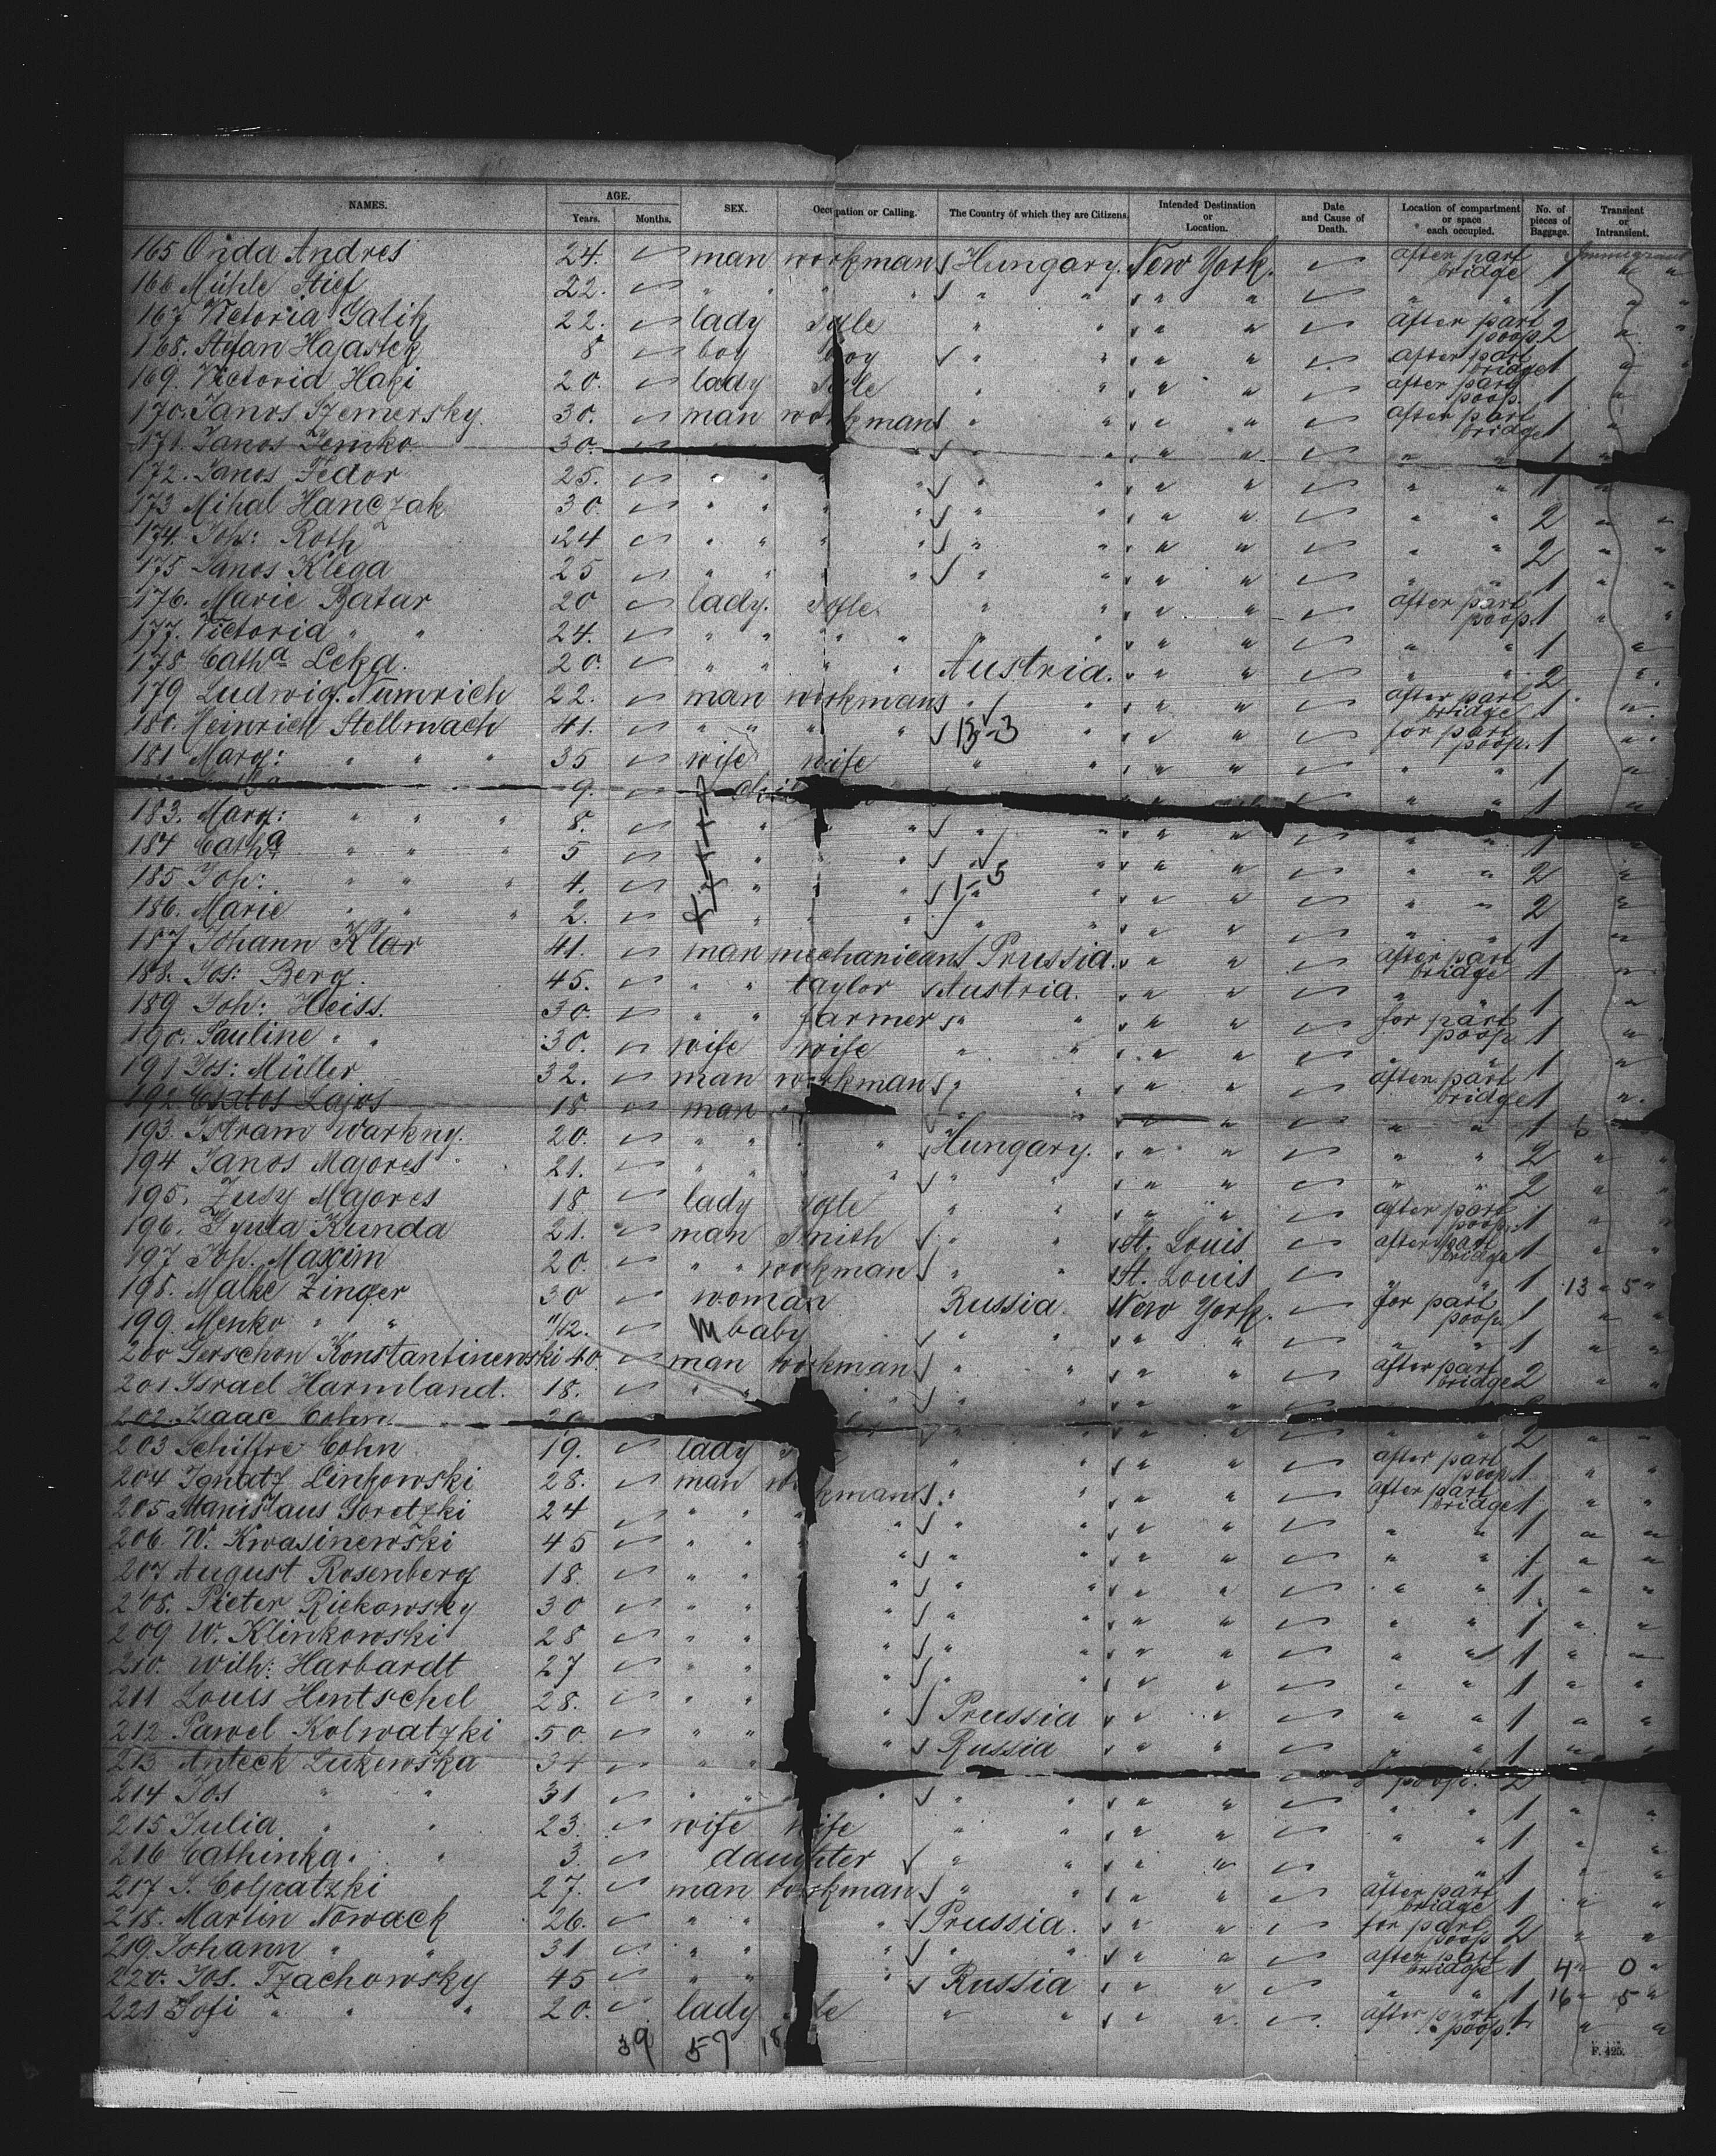 NAMES. AGE. Years. Months. SEX. Occupation or Calling. The Country of which they are Citizens. Intended Destination or Location. Date and Cause of Death. Location of compartment or space each occupied. No. of pieces of Baggage. Transient or Intransient.
165 Onda Andres 24. man workman Hungary. New York. after part bridge 1 Immigrant
166 Mühle Stief 22. " " " " " " " " " " 1 " "
167 Victoria Galik 22. lady sgle " " " " after part poop. 2 " "
168. Stefan Hajastek 8 boy boy " " " " after part bridge 1 " "
169. Victoria Haki 20. lady sgle " " " " after part poop. 1 "
170. Janos Szemersky. 30. man workman " " " " after part bridge 1 "
171. Janos Temko 30. " " " " " " 1
172. Janos Fedor 25. " " " " " " " " " " 1 "
173 Mihal Hanczak 30. " " " " " " " " " " 2 " "
174. Joh: Roth 24 " " " " " " " " " " 2 " "
175 Janos Klega 25 " " " " " " " " " " 1 " "
176. Marie Batar 20 lady. sgle. " " " " after part poop. 1 " "
177. Victoria " " 24. " " " " " " " " " " 1 "
178 Catha Leka. 20. " " " " Austria. " " " " 2 "
179 Ludwig Numrich 22. man workmans " " " " after part bridge 1 "
180. Heinrich Stellmach 41. " " " " 13-3 " " " for part poop. 1 "
181 Marg: " " " 35 wife wife " " " " " " 1 "
9. " " " " 1 "
183. Marg: " " " 8. " " " " " " " " 1 "
184 Catha " " " 5 " " " " " " " 2 "
185 Joh: " " " 4. " " " 1-5 " " " " " 2 "
186. Marie " " " 2. " " " " " " " " " 1 "
187 Johann Klar 41. man mechanican Prussia. " " after part bridge 1 "
188. Jos: Berg. 45. " " taylor Austria. " " " 1 "
189 Joh: Heiss. 30. " " farmer " " " " for part poop 1 "
190. Pauline " " 30. wife wife " " " " " " 1 "
191 Jos: Müller 32. man workmans " " " " after part bridge 1 "
192 Lajos 18 man " " " " 1 6
193. Istram Warkny. 20. " " " Hungary. " " " " 2 " "
194 Janos Majores 21. " " " " " " " " " 2 " "
195. Zusy Majores 18 lady sgle " " " " after part poop. 1 " "
196. Gyula Kunda 21. man Smith " " St. Louis after part bridge 1 " "
197 Joh. Maxim 20. " " workman " " St. Louis " 1 13 " 5 "
198. Malke Zinger 30 woman Russia. New York. for part poop. 1 " "
199. Menko " " 11/12. M baby " " " " " " 1 " "
200 Gerschon Konstantinewski 40. man workman " " " " after part bridge 2 " "
201 Israel Harmland. 18. " " " " " " "
202. Isaac Cohn. 20 " " " " 2 " "
203 Schiffre Cohn 19. lady " " " " after part poop 1 " "
204 Ignatz Linkowski 28. man workmans " " " " after part bridge 1 " "
205 Stanislaus Goretzki 24 " " " " " " " " " 1 " "
206. W. Kwasinewski 45 " " " " " " " " " 1 " "
207 August Rosenberg 18. " " " " " " " " " 1 " "
208. Pieter Rickowsky 30 " " " " " " " " 1 " "
209 W. Klinkowski 28 " " " " " " " " 1 " "
210. Wilh: Harbardt 27 " " " " " " " " 1 " "
211 Louis Hentschel 28. " " " Prussia " " " " 1 " "
212 Pawel Kolwatzki 50. " " " Russia " " " " 1 " "
213 Anteck Lukewska 34 " " poop. 2
214 Jos " " 31 " " " " " " " " 1 " "
215 Julia " " 23. wife wife " " " " " " 1 " "
216 Cathinka. " " 3. daughter " " " " " " 1 " "
217 J. Colpatzki 27. man workman " " " " after part bridge 1 " "
218. Martin Nowack 26. " " " Prussia. " " for part poop 2 " "
219. Johann " " 31 " " " " " " " after part bridge 1 4 " 0 "
220. Jos. Tzachowsky 45 " " " Russia " " " " 1 16 " 5 "
221 Sofi " " " 20. lady sgle " " " " after part poop. 1 " "
39 57 18
F. 425.